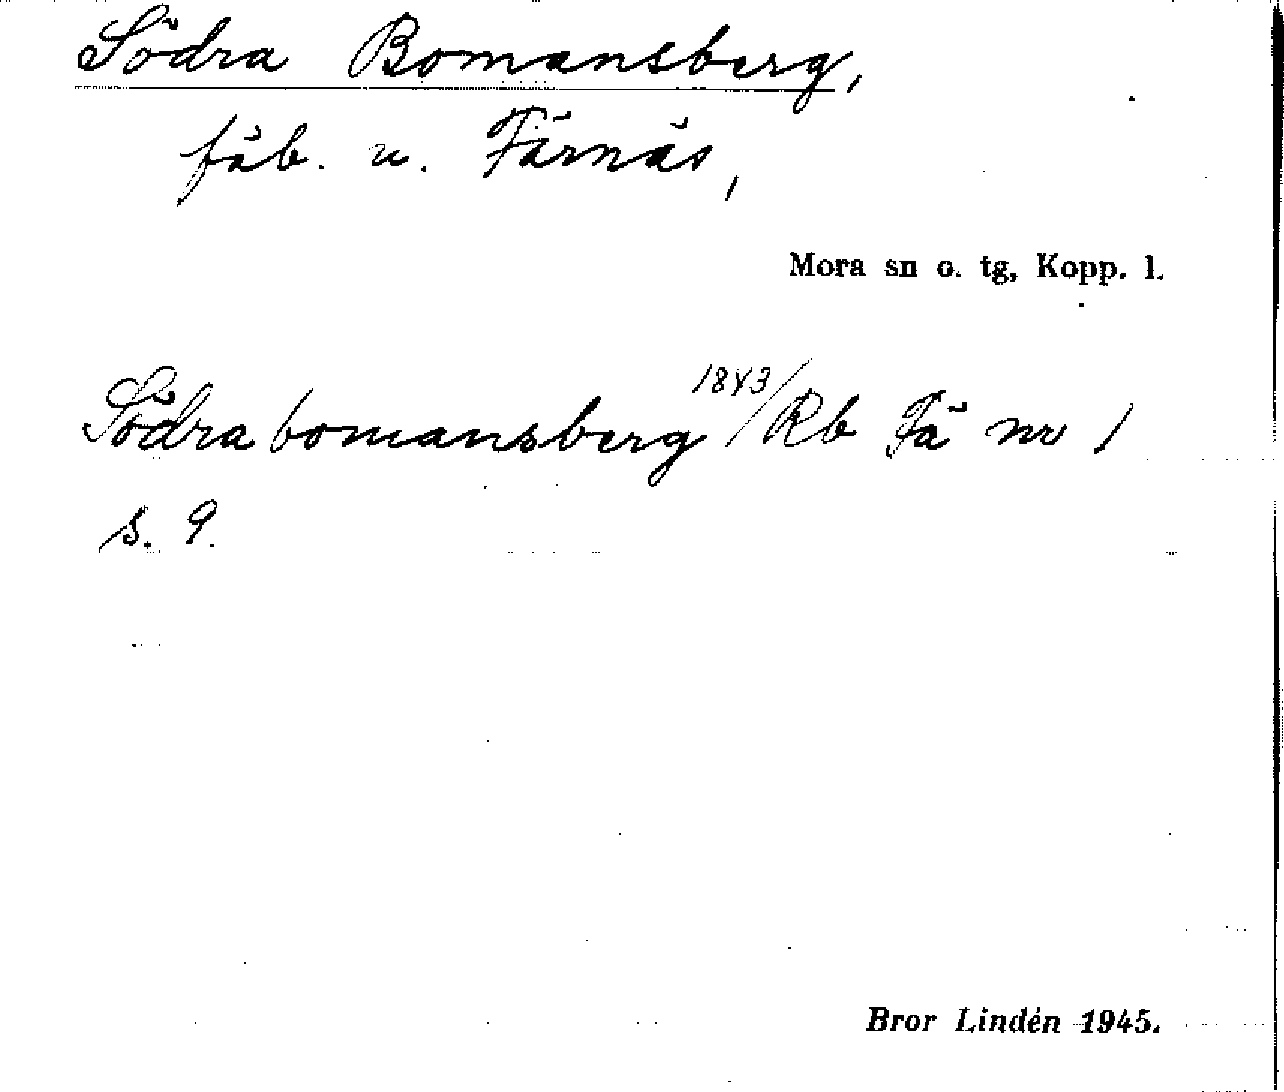 Södra Bomansberg,
fäb. u. Färnäs,
Mora sn o. tg, Kopp. l.
Södra bomansberg 1843/Rb Fä nr 1
s. 9.
Bror Lindén 1945.